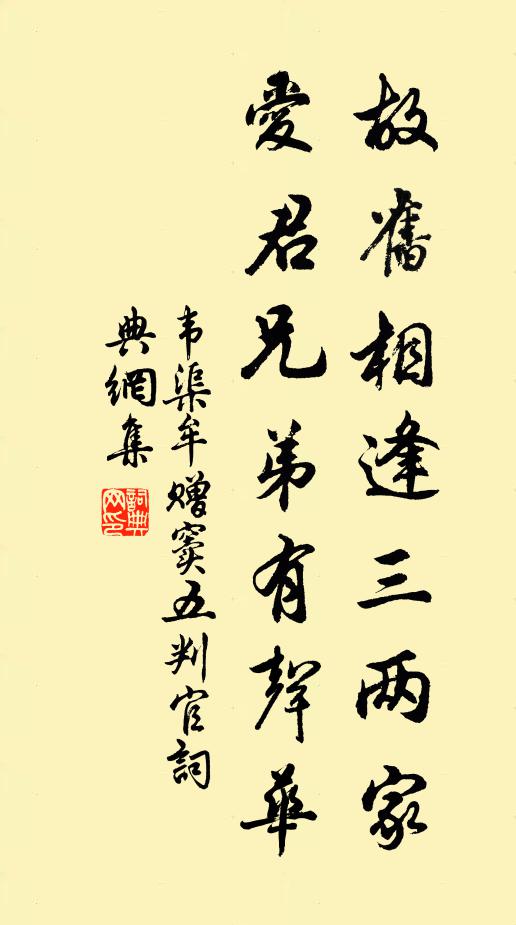 故舊相逢三两家
愛君兄弟有聲華
韦渠牟赠窦五判官詞
典網集
詞典
网印